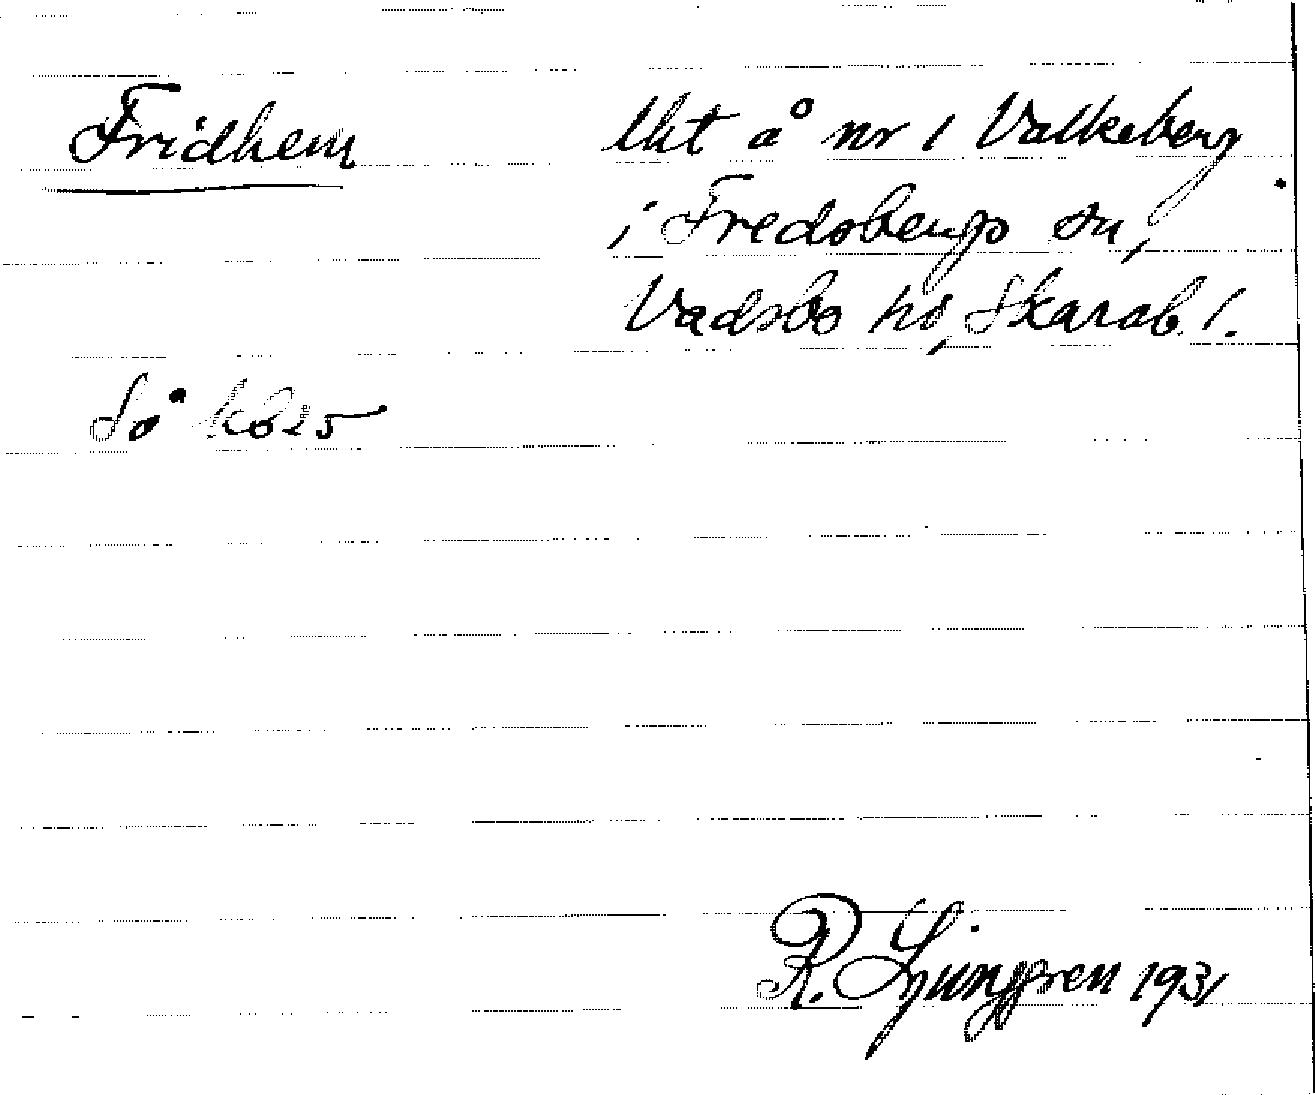 Fridhem
lht å nr 1 Valkeberg
i Fredsbergs sn,
Vadsbo hd, Skarab. l.
Så k625
R. Ljunggren 1931